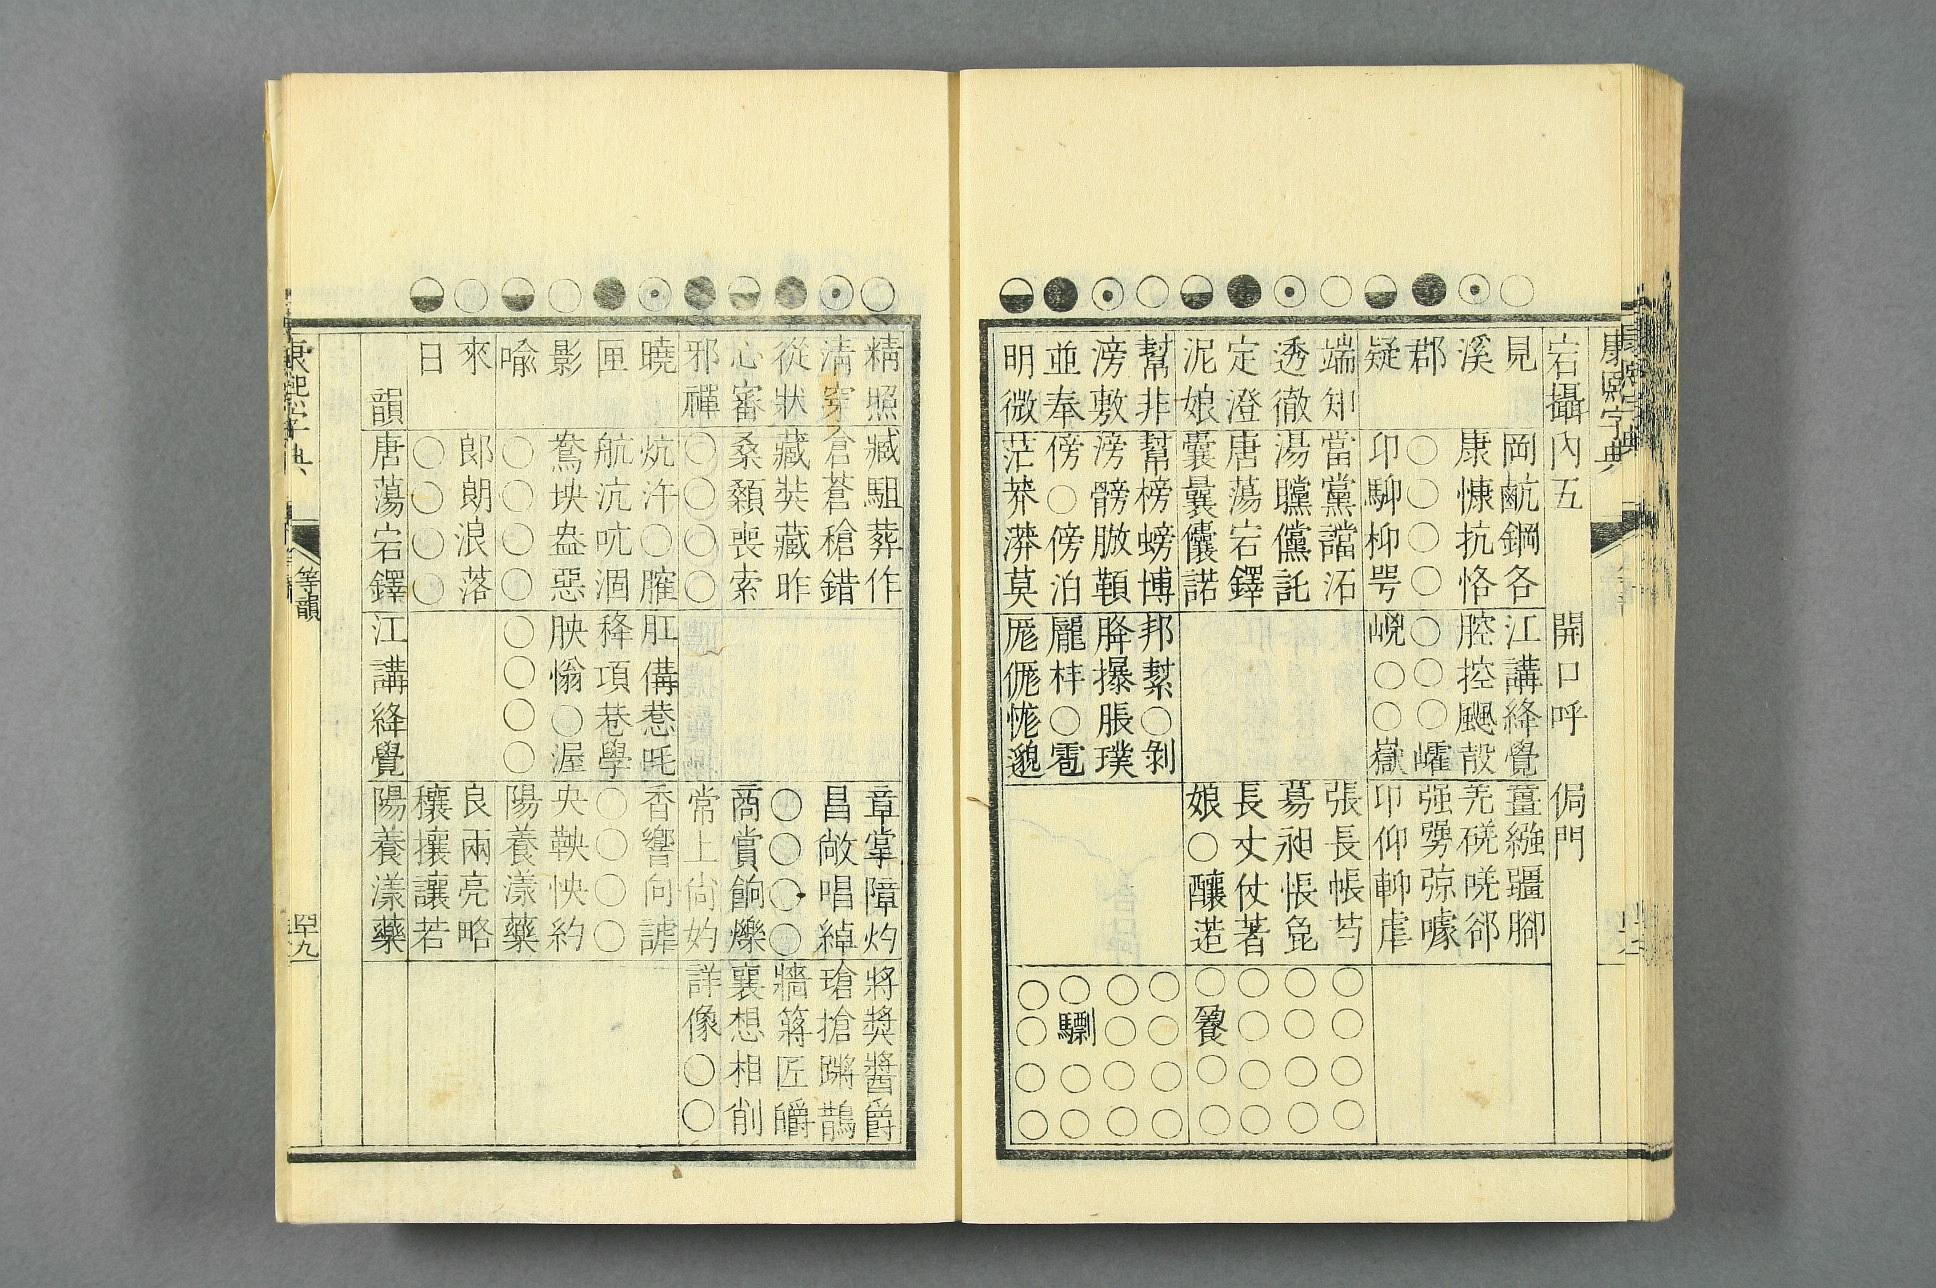 康熙字典
宕攝內五 開口呼 侷門
見 岡䴚鋼各 江講絳覺 薑繈疆腳
溪 康慷抗恪 腔控𩗴㱿 羌磋唴郤
郡 ○○○○ ○○○㠊 强勥弶噱
疑 卬駠枊咢 峣○○嶽 卬仰𨋕虐
端知 當黨譡沰 張長帳芍 ○○○○
透徹 湯矘儻託 募昶悵㲋 ○○○○
定澄 唐蕩宕鐸 長丈仗著 ○○○○
泥娘 囊曩儾諾 娘○釀逽 ○○○○
幫非 幫榜螃博 邦㨍○剝 ○○○○
滂敷 滂髈䐲䩷 胮㩧脹璞 ○○○○
並奉 傍○傍泊 龐㭋○雹 ○驃○○
明微 茫莽漭莫 厖㑻㤶邈 ○○○○
精照 臧駔葬作 章掌障灼 將奬醬爵
清穿 倉蒼槍錯 昌敞唱綽 瑲搶蹡鵲
從狀 藏奘藏昨 ○○○○ 牆蔣匠皭
心審 桑顙喪索 商賞餉爍 襄想相削
邪禪 ○○○○ 常上尙妁 詳像○○
曉 炕汻○臛 肛備𢠵吒 香響向謔
匣 航沆吭涸 䂫項巷學 ○○○○
影 鴦坱盎惡 胦慃○渥 央鞅怏約
喻 ○○○○ ○○○○ 陽養漾藥
來 郎朗浪落 良兩亮略
日 ○○○○ 穰攘讓若
韻 唐蕩宕鐸 江講絳覺 陽養漾藥
康熙字典 等韻 罕九